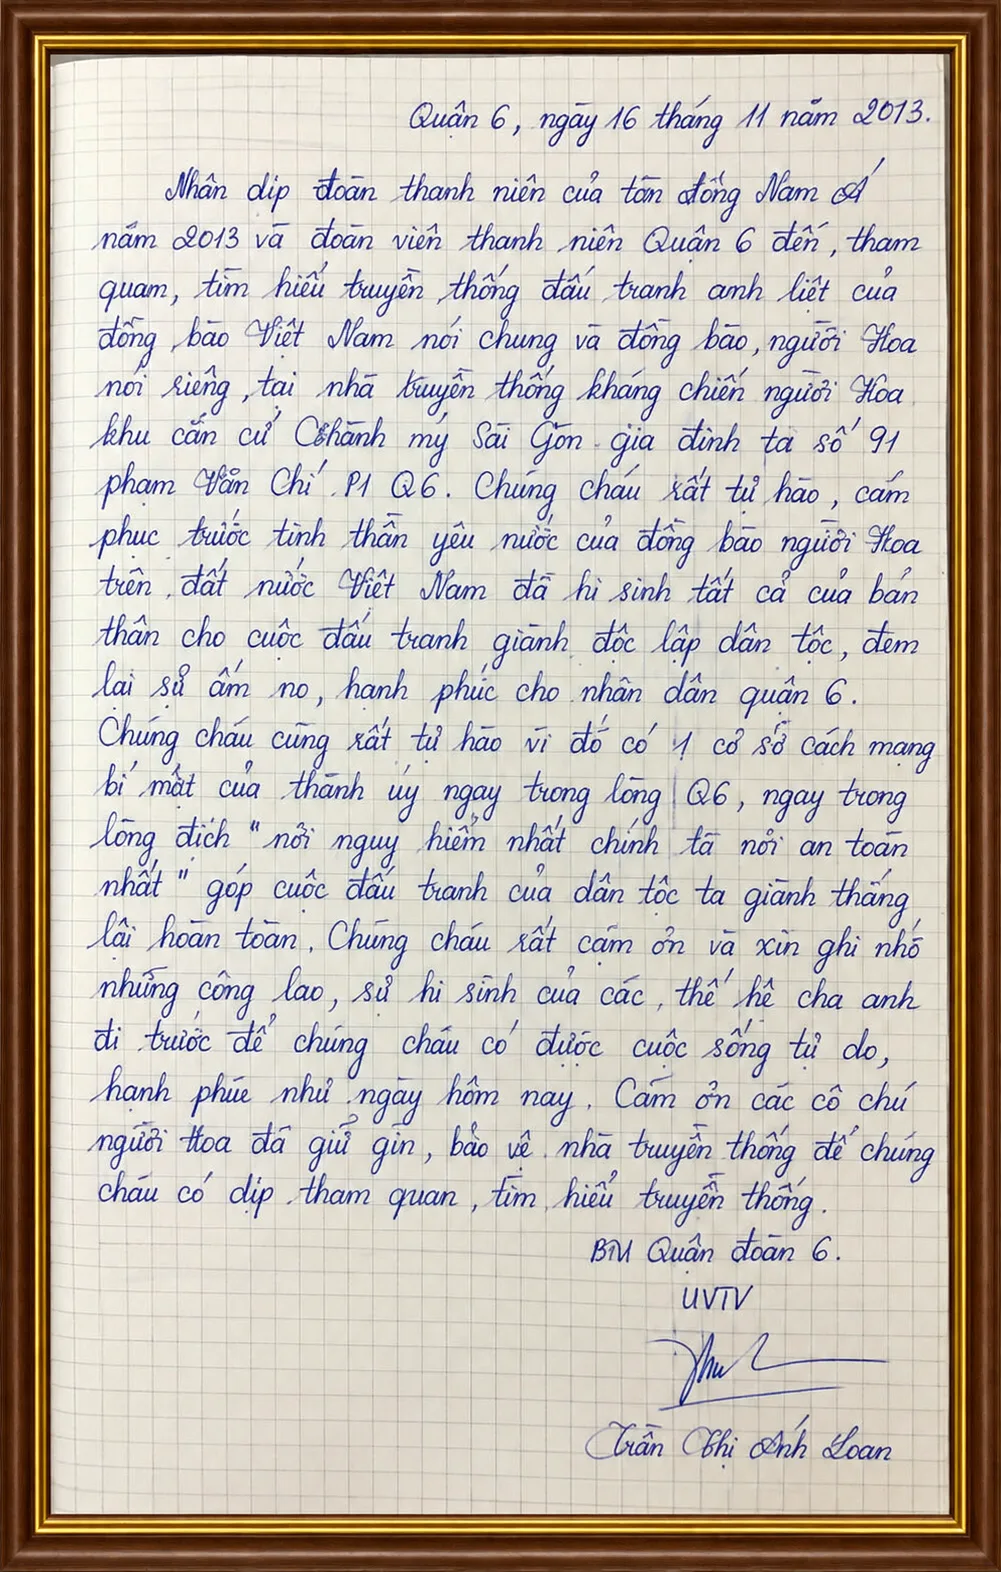 Quận 6, ngày 16 tháng 11 năm 2013.
Nhân dịp đoàn thanh niên của tân đống Nam Á
năm 2013 và đoàn viên thanh niên Quận 6 đến, tham
quam, tìm hiểu truyền thống đấu tranh anh liệt của
đồng bào Việt Nam nói chung và đồng bào, người Hoa
nói riêng, tại nhà truyền thống kháng chiến người Hoa
khu căn cứ Chành mý Sài Gòn gia đình ta số 91
phạm Văn Chí P1 Q6. Chúng cháu rất tự hào, cám
phục trước tình thần yêu nước của đồng bào người Hoa
trên đất nước Việt Nam đã hi sinh tất cả của bản
thân cho cuộc đấu tranh giành độc lập dân tộc, đem
lại sự ấm no, hạnh phúc cho nhân dân quận 6.
Chúng cháu cũng rất tự hào vì đó có 1 cơ sở cách mạng
bí mật của thành ủy ngay trong lòng Q6, ngay trong
lòng địch "nơi nguy hiểm nhất chính tà nơi an toàn
nhất" góp cuộc đấu tranh của dân tộc ta giành thắng
lợi hoàn toàn. Chúng cháu rất cám ơn và xin ghi nhớ
những công lao, sự hi sinh của các, thế hệ cha anh
đi trước để chúng cháu có được cuộc sống tự do,
hạnh phúc như ngày hôm nay. Cám ơn các cô chú
người Hoa đã giữ gìn, bảo vệ nhà truyền thống để chúng
cháu có dịp tham quan, tìm hiểu truyền thống.
Quận đoàn 6.
UVTV
Trần Thị Ánh Loan